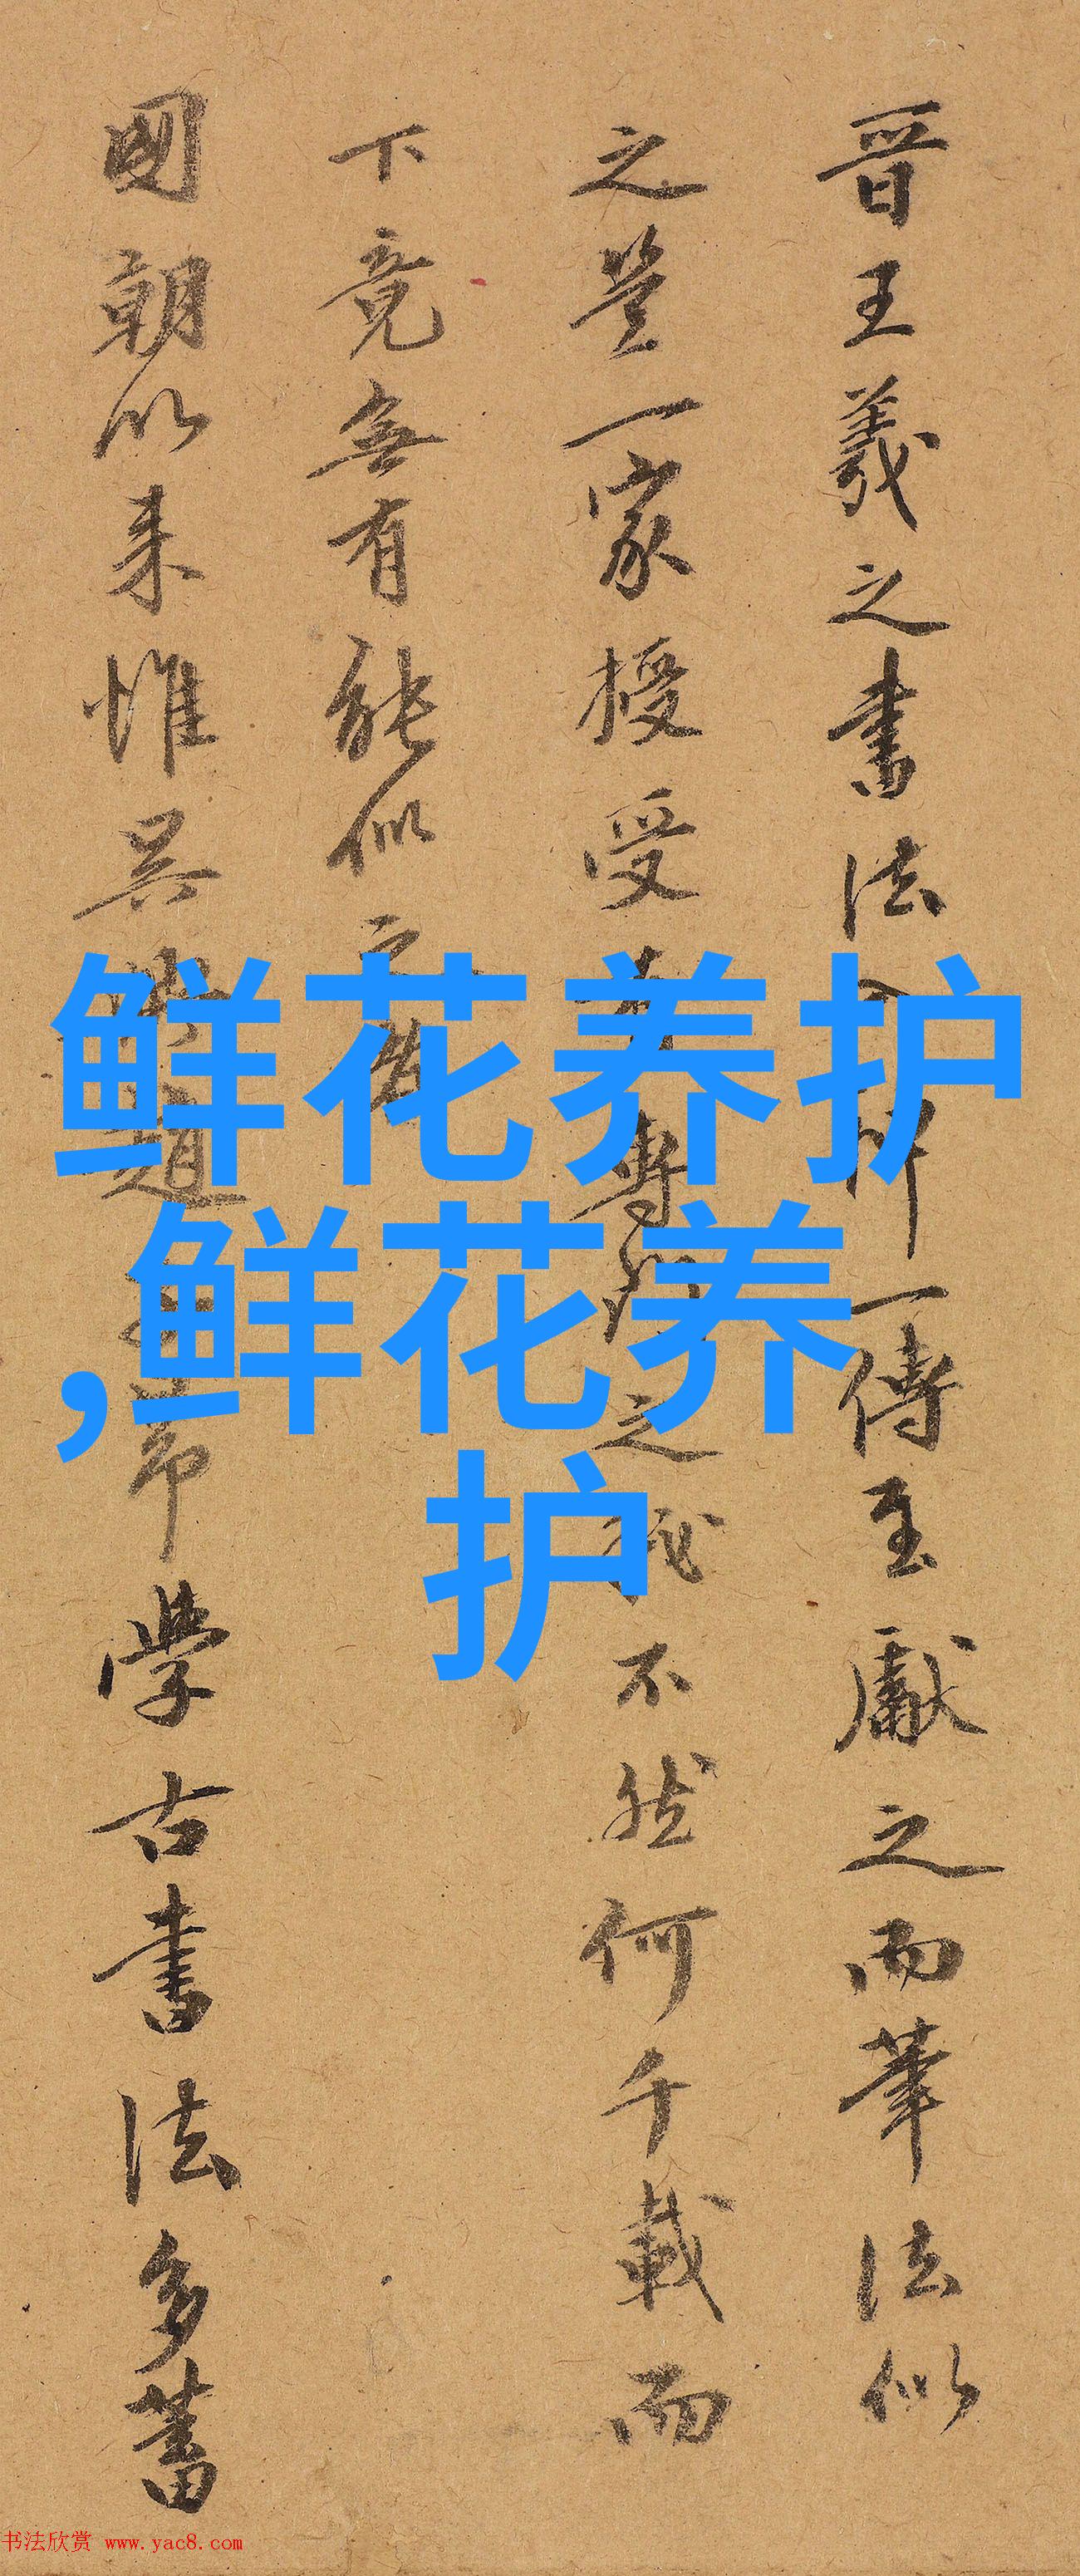 晋王羲之書法一傳至獻之而筆法似
之豈一家授受專門之不然何千載而
下竟無有能似之
國朝以来惟吴興趙學古書法多蓄
鲜花养护
,鲜花养
护
书法欣赏 www.yac8.com